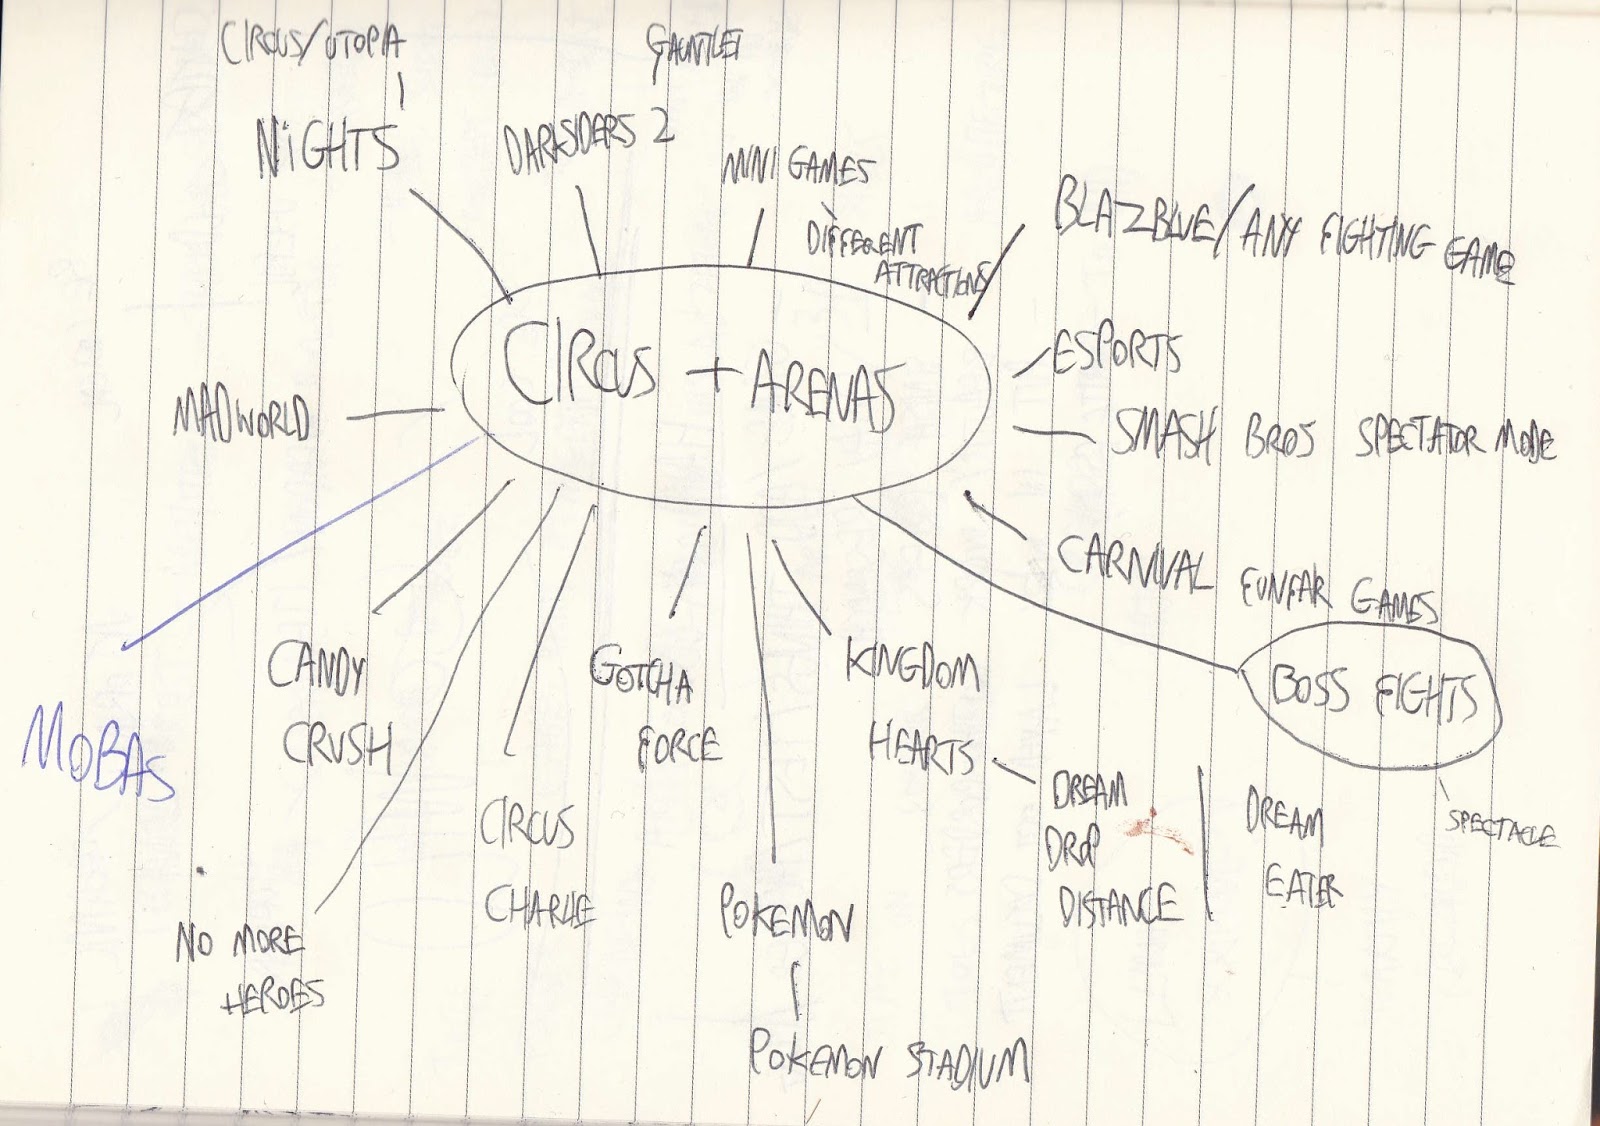 CIRCUS/UTOPIA
GAUNTLET
NiGHTS
DARKSIDERS 2
MINI GAMES
DIFFERENT
ATTRACTIONS
BLAZBLUE/ANY FIGHTING GAME
CIRCUS + ARENAS
ESPORTS
MADWORLD
SMASH BROS SPECTATOR MODE
CARNIVAL FUNFAR GAMES
MOBAS
CANDY
CRUSH
GOTCHA
FORCE
KINGDOM
HEARTS
BOSS FIGHTS
SPECTACLE
DREAM
DROP
DISTANCE
DREAM
EATER
CIRCUS
CHARLIE
NO MORE
HEROES
POKEMON
POKEMON STADIUM